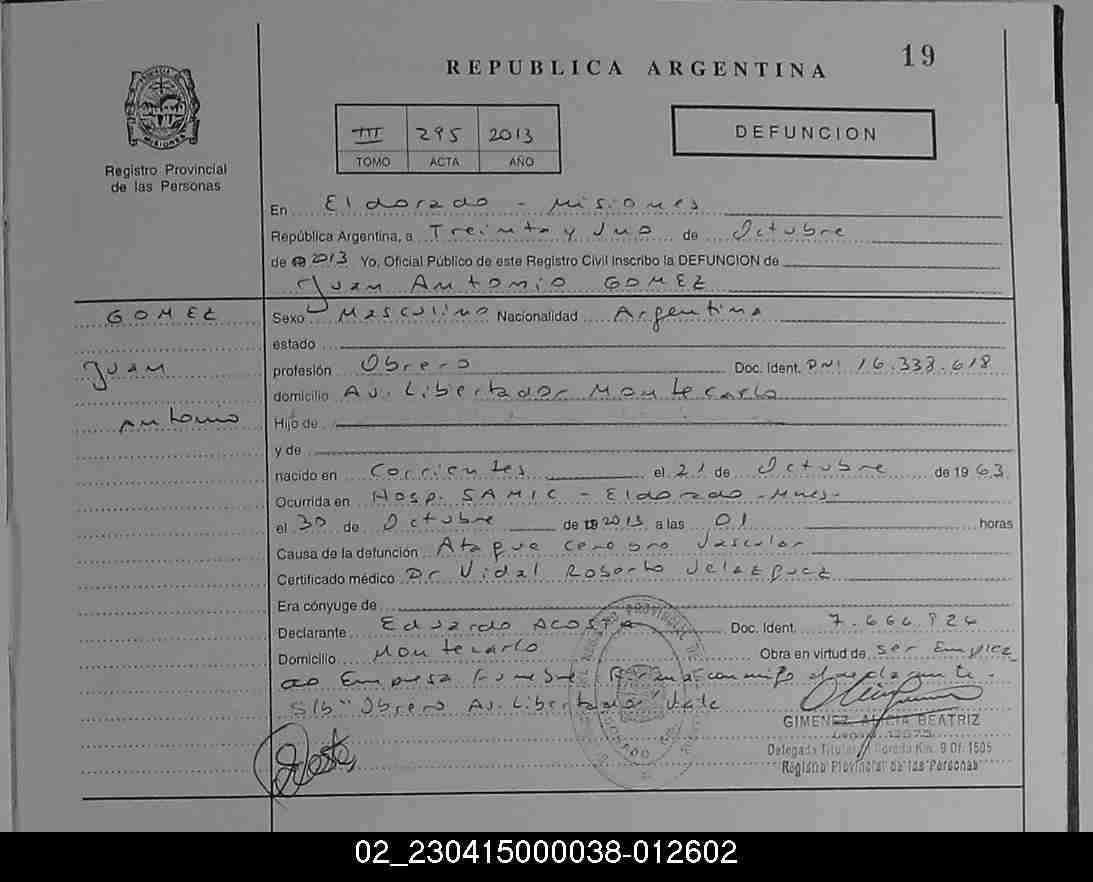 19
REPUBLICA ARGENTINA
III 295 2013
TOMO ACTA AÑO
DEFUNCION
PROVINCIA DE MISIONES
Registro Provincial
de las Personas
En Eldorado - Misiones
República Argentina, a Treinta y Uno de Octubre
de 2013 Yo, Oficial Público de este Registro Civil inscribo la DEFUNCION de
Juan Antonio GOMEZ
GOMEZ
Juan
Antonio
Sexo Masculino Nacionalidad Argentina
estado
profesión Obrero Doc. Ident. DNI 16.333.618
domicilio Av. Libertador Montecarlo
Hijo de
y de
nacido en Corrientes el 21 de Octubre de 1963
Ocurrida en Hosp. SAMIC - Eldorado - Mnes.
el 30 de Octubre de 2013 a las 01 horas
Causa de la defunción Ataque cerebro vascular
Certificado médico Dr Vidal Roberto Velazquez
Era cónyuge de
Declarante Eduardo ACOSTA Doc. Ident. 7.666.824
Domicilio Montecarlo Obra en virtud de ser Emplea
do Empresa Funebre Firma conmigo
S/b "Obrero Av. Libertador Vale
GIMENEZ ALICIA BEATRIZ
Delegada Titular Eldorado Km. 9 Of. 1505
Registro Provincial de las Personas
02_230415000038-012602